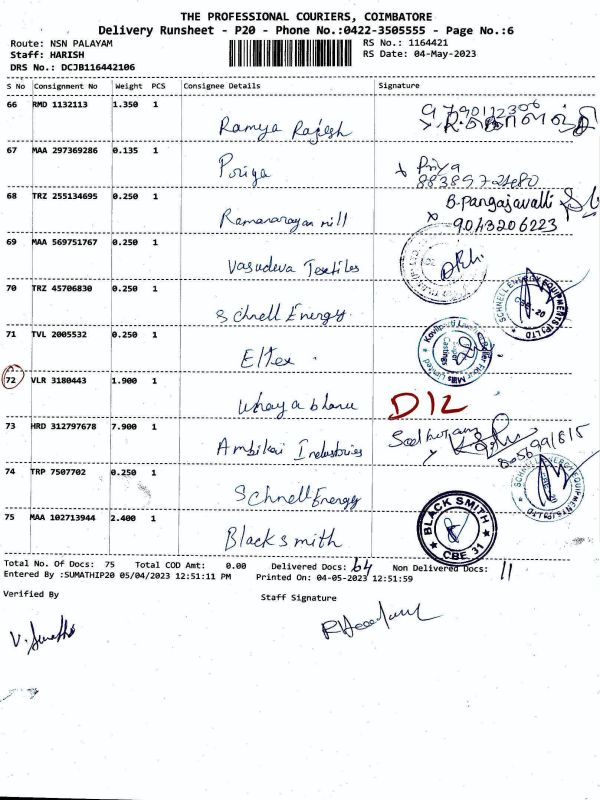 THE PROFESSIONAL COURIERS, COIMBATORE
Delivery Runsheet - P20 - Phone No.:0422-3505555 - Page No.:6
Route: NSN PALAYAM
Staff: HARISH
DRS No.: DCJB116442106
RS No.: 1164421
RS Date: 04-May-2023
S No Consignment No Weight PCS Consignee Details Signature
66 RMD 1132113 1.350 1
Ramya Rajesh
67 MAA 297369286 0.135 1
Poriya Priya
68 TRZ 255134695 0.250 1 B.Pangajavalli
Ramanarayan mill 9043206223
69 MAA 569751767 0.250 1
Vasudeva Textiles
70 TRZ 45706830 0.250 1
Schnell Energy SCHNELL ENERGY EQUIPMENTS (P) LTD CBE-20
71 TVL 2005532 0.250 1
Eltex
72 VLR 3180443 1.900 1
D12
73 HRD 312797678 7.900 1
Ambikai Industries
74 TRP 7507702 0.250 1
Schnell Energy SCHNELL ENERGY EQUIPMENTS (P) LTD
75 MAA 102713944 2.400 1
Blacksmith BLACK SMITH CBE 31
Total No. Of Docs: 75 Total COD Amt: 0.00 Delivered Docs: 64 Non Delivered Docs: 11
Entered By :SUMATHIP20 05/04/2023 12:51:11 PM Printed On: 04-05-2023 12:51:59
Verified By Staff Signature